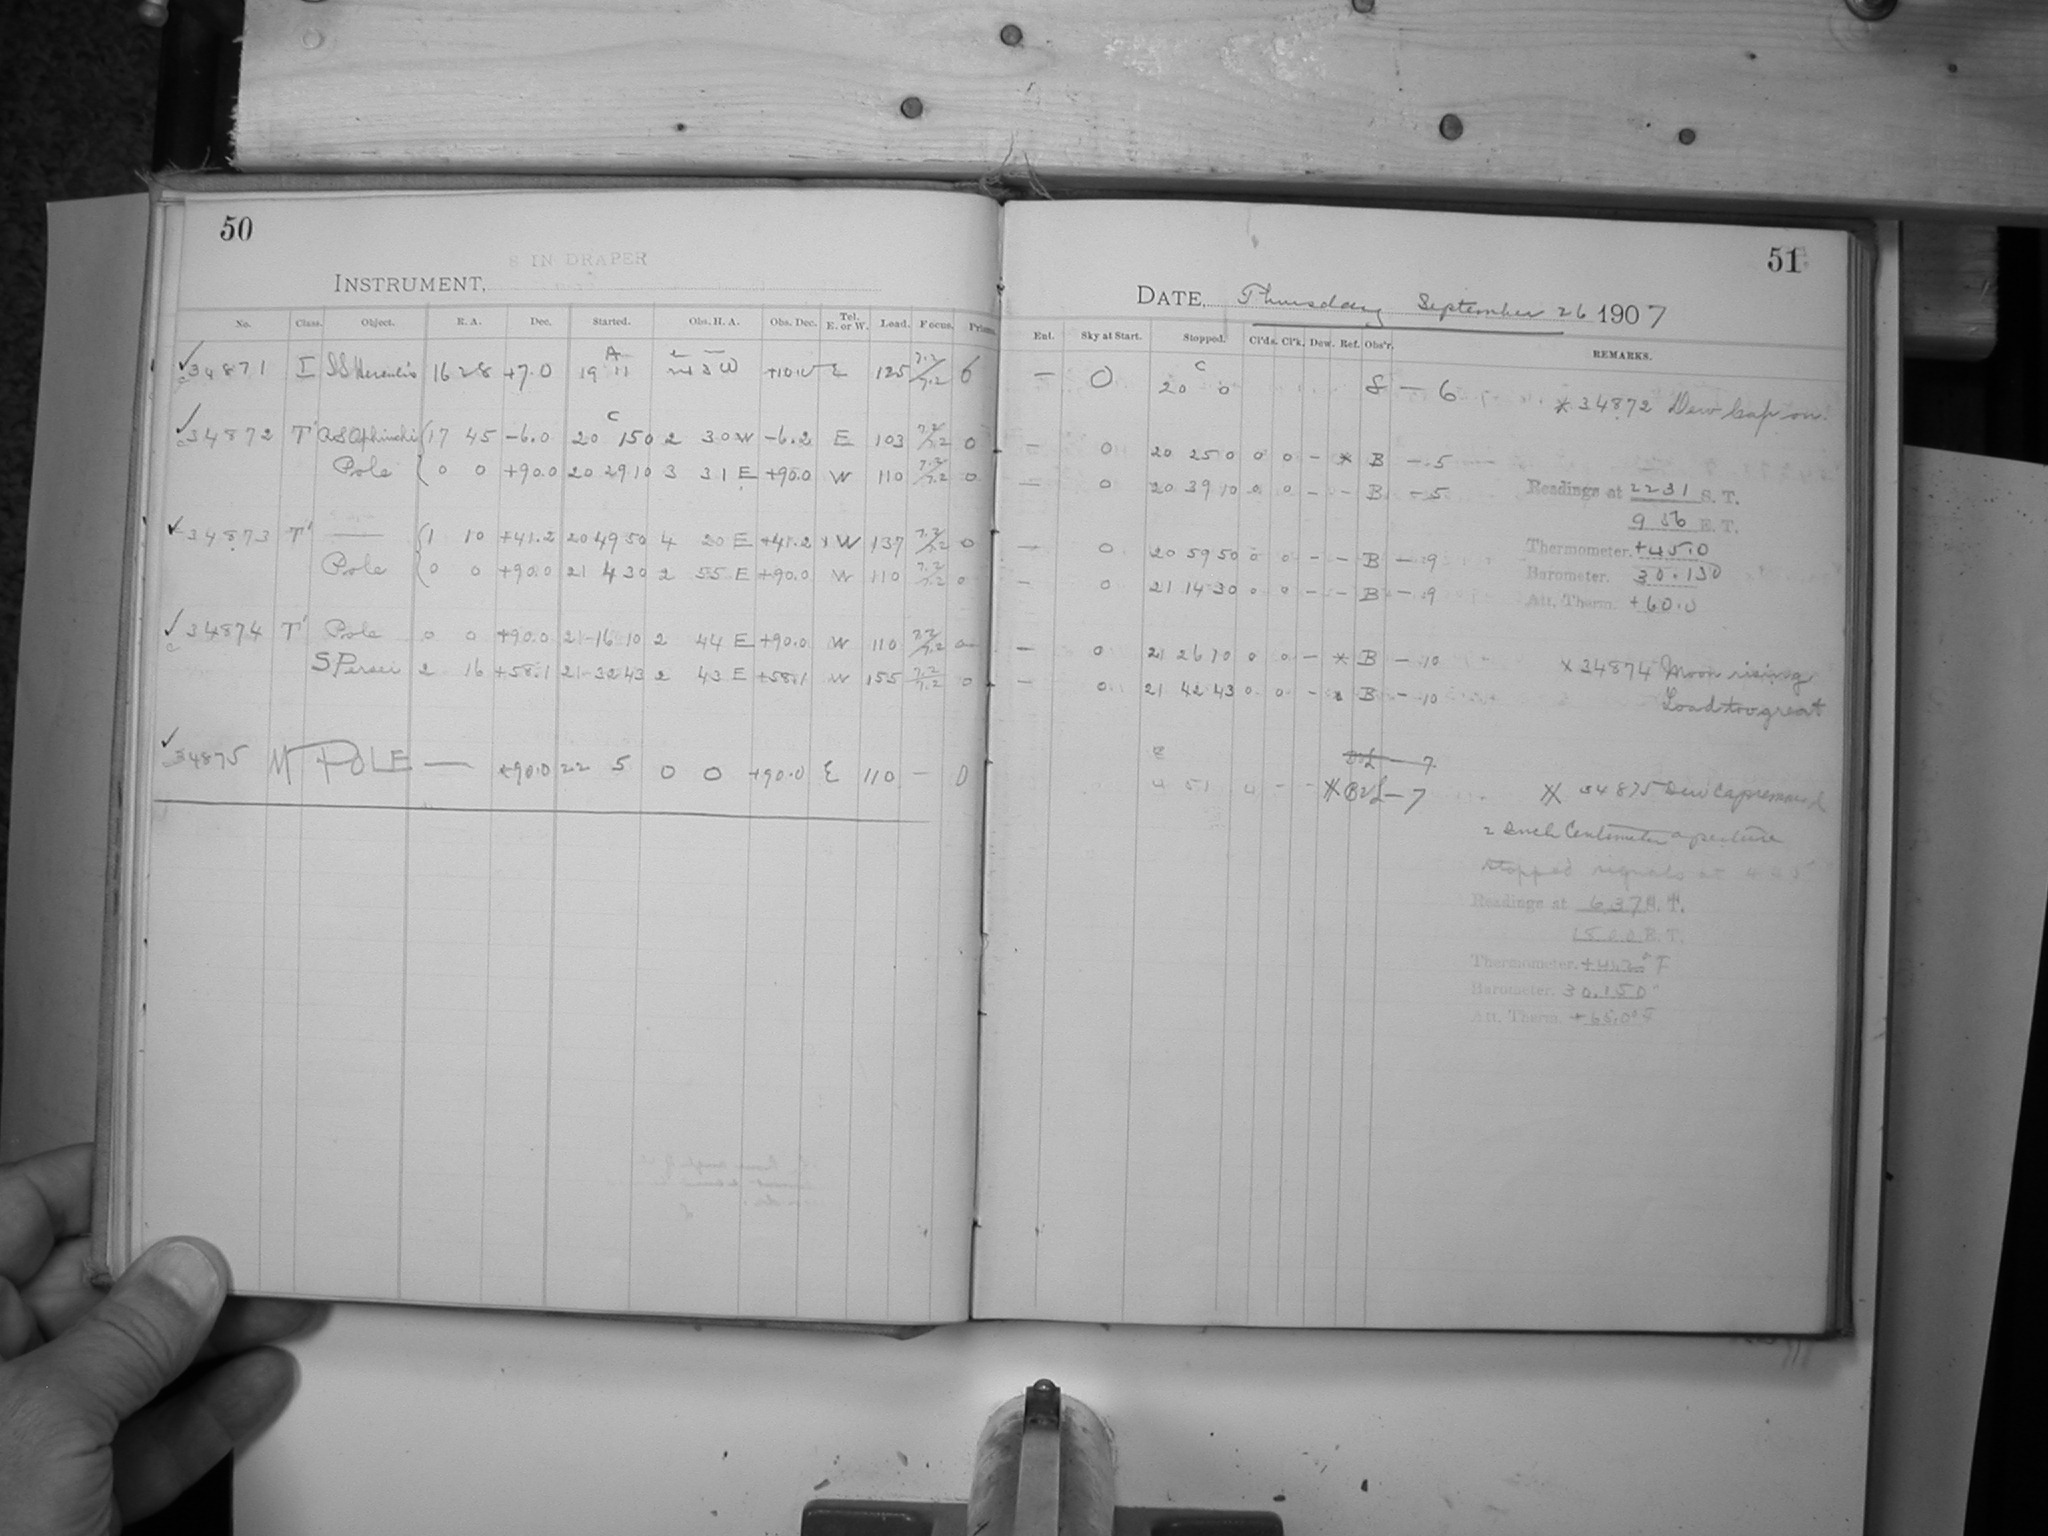 50
8 IN DRAPER
INSTRUMENT,
No. Class. Object. R. A. Dec. Started. Obs. H. A. Obs. Dec. Tel. E. or W. Load. Focus. Prisms.
34871 I SS Herculis 16 28 +7.0 19 11 3 W +10.0 E 125 7.2/7.2 0
34872 T' Ophiuchi 17 45 -6.0 20 15 0 2 30 W -6.2 E 103 7.2/7.2 0
Pole 0 0 +90.0 20 29 10 3 31 E +90.0 W 110 7.2/7.2 0
34873 T' — 1 10 +41.2 20 49 50 4 20 E +41.2 W 137 7.2/7.2 0
Pole 0 0 +90.0 21 4 30 2 55 E +90.0 W 110 7.2/7.2 0
34874 T' Pole 0 0 +90.0 21 16 10 2 44 E +90.0 W 110 7.2/7.2 0
S Persei 2 16 +58.1 21 32 43 2 43 E +58.1 W 155 7.2/7.2 0
34875 M POLE — +90.0 22 5 0 0 +90.0 E 110 — 0
51
DATE, Thursday September 26 1907
Ent. Sky at Start. Stopped. Cl'ds. Cl'k. Dew. Ref. Obs'r. REMARKS.
— 0 20 0 S — 6
* 34872 Dew Cap on.
— 0 20 25 0 0 0 — * B — 5
— 0 20 39 10 0 0 — — B — 5
Readings at 22 31 S. T.
9 56 E. T.
Thermometer. +45.0
Barometer. 30.130
Att. Therm. +60.0
— 0 20 59 50 0 0 — — B — 9
— 0 21 14 30 0 0 — — B — 9
— 0 21 26 10 0 0 — * B — 10
x 34874 Moon rising
— 0 21 42 43 0 0 — * B — 10
Load too great
7
4 51 — — * B & L — 7
* 34875 Dew Cap removed
2 Inch Centimeter aperture
Stopped signals at
Readings at 6 37 S. T.
E. T.
Thermometer.
Barometer. 30.150"
Att. Therm. +65.0° F